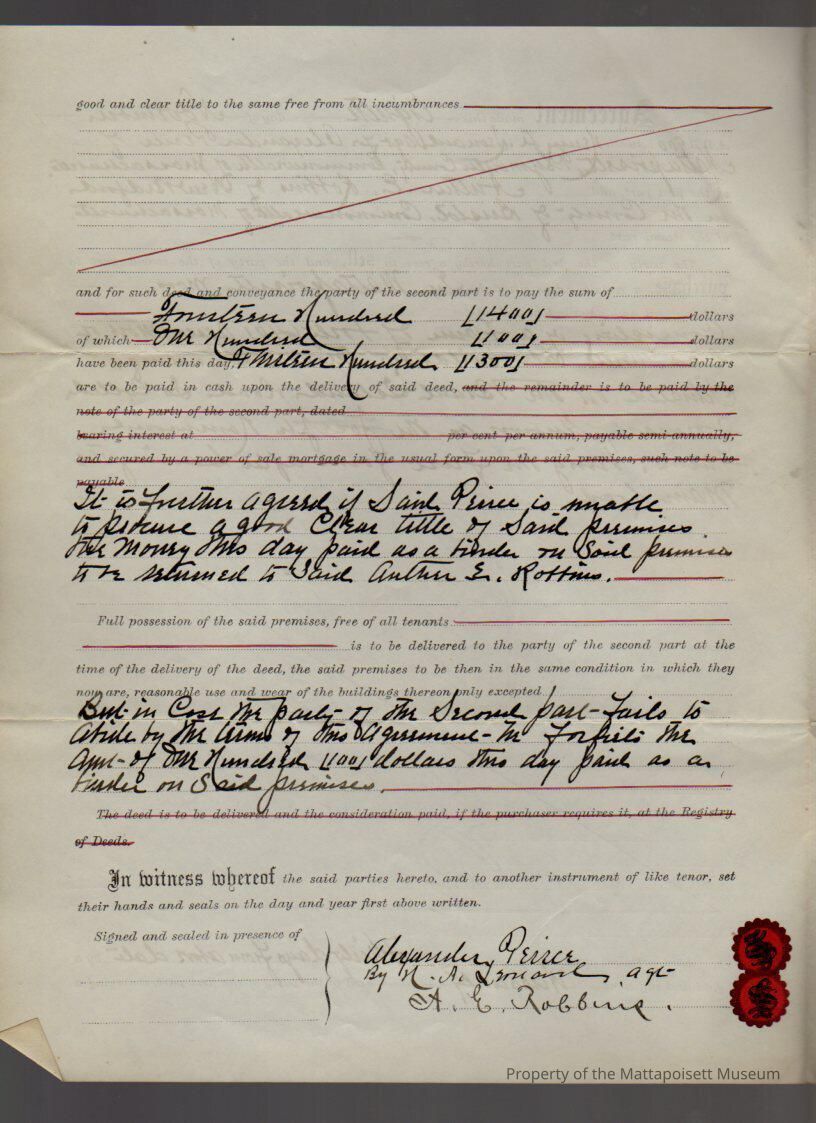 good and clear title to the same free from all incumbrances
and for such deed and conveyance the party of the second part is to pay the sum of
Fourteen Hundred [1400] dollars
of which One Hundred [100] dollars
have been paid this day, Thirteen Hundred [1300] dollars
are to be paid in cash upon the delivery of said deed, and the remainder is to be paid by the
note of the party of the second part, dated
bearing interest at per cent per annum, payable semi-annually,
and secured by a power of sale mortgage in the usual form upon the said premises, such note to be
payable
It is further agreed if Said Peirce is unable
to procure a good Clear tittle of Said premises
the Money this day paid as a binder on Said premises
to be returned to Said Arthur E. Robbins.
Full possession of the said premises, free of all tenants
is to be delivered to the party of the second part at the
time of the delivery of the deed, the said premises to be then in the same condition in which they
now are, reasonable use and wear of the buildings thereon only excepted.
But in Case the party of the Second part fails to
abide by the terms of this Agreement he forfeits the
Amt of One Hundred [100] dollars this day paid as a
binder on Said premises.
The deed is to be delivered and the consideration paid, if the purchaser requires it, at the Registry
of Deeds.
In witness whereof the said parties hereto, and to another instrument of like tenor, set
their hands and seals on the day and year first above written.
Signed and sealed in presence of
Alexander Peirce
By N. A. Leonard agt
A. E. Robbins.
Property of the Mattapoisett Museum